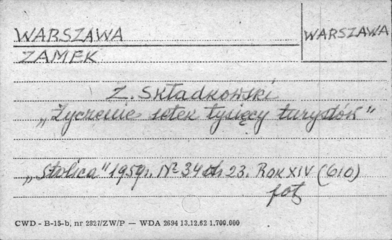 WARSZAWA
WARSZAWA
ZAMEK
Z. Składkowski
„Życzenie setek tysięcy turystów"
„Stolica" 1959r. Nº 34 str 23. Rok XIV (610)
fot
CWD - B-15-b, nr 2827/ZW/P — WDA 2694 12.12.52 1.700.000